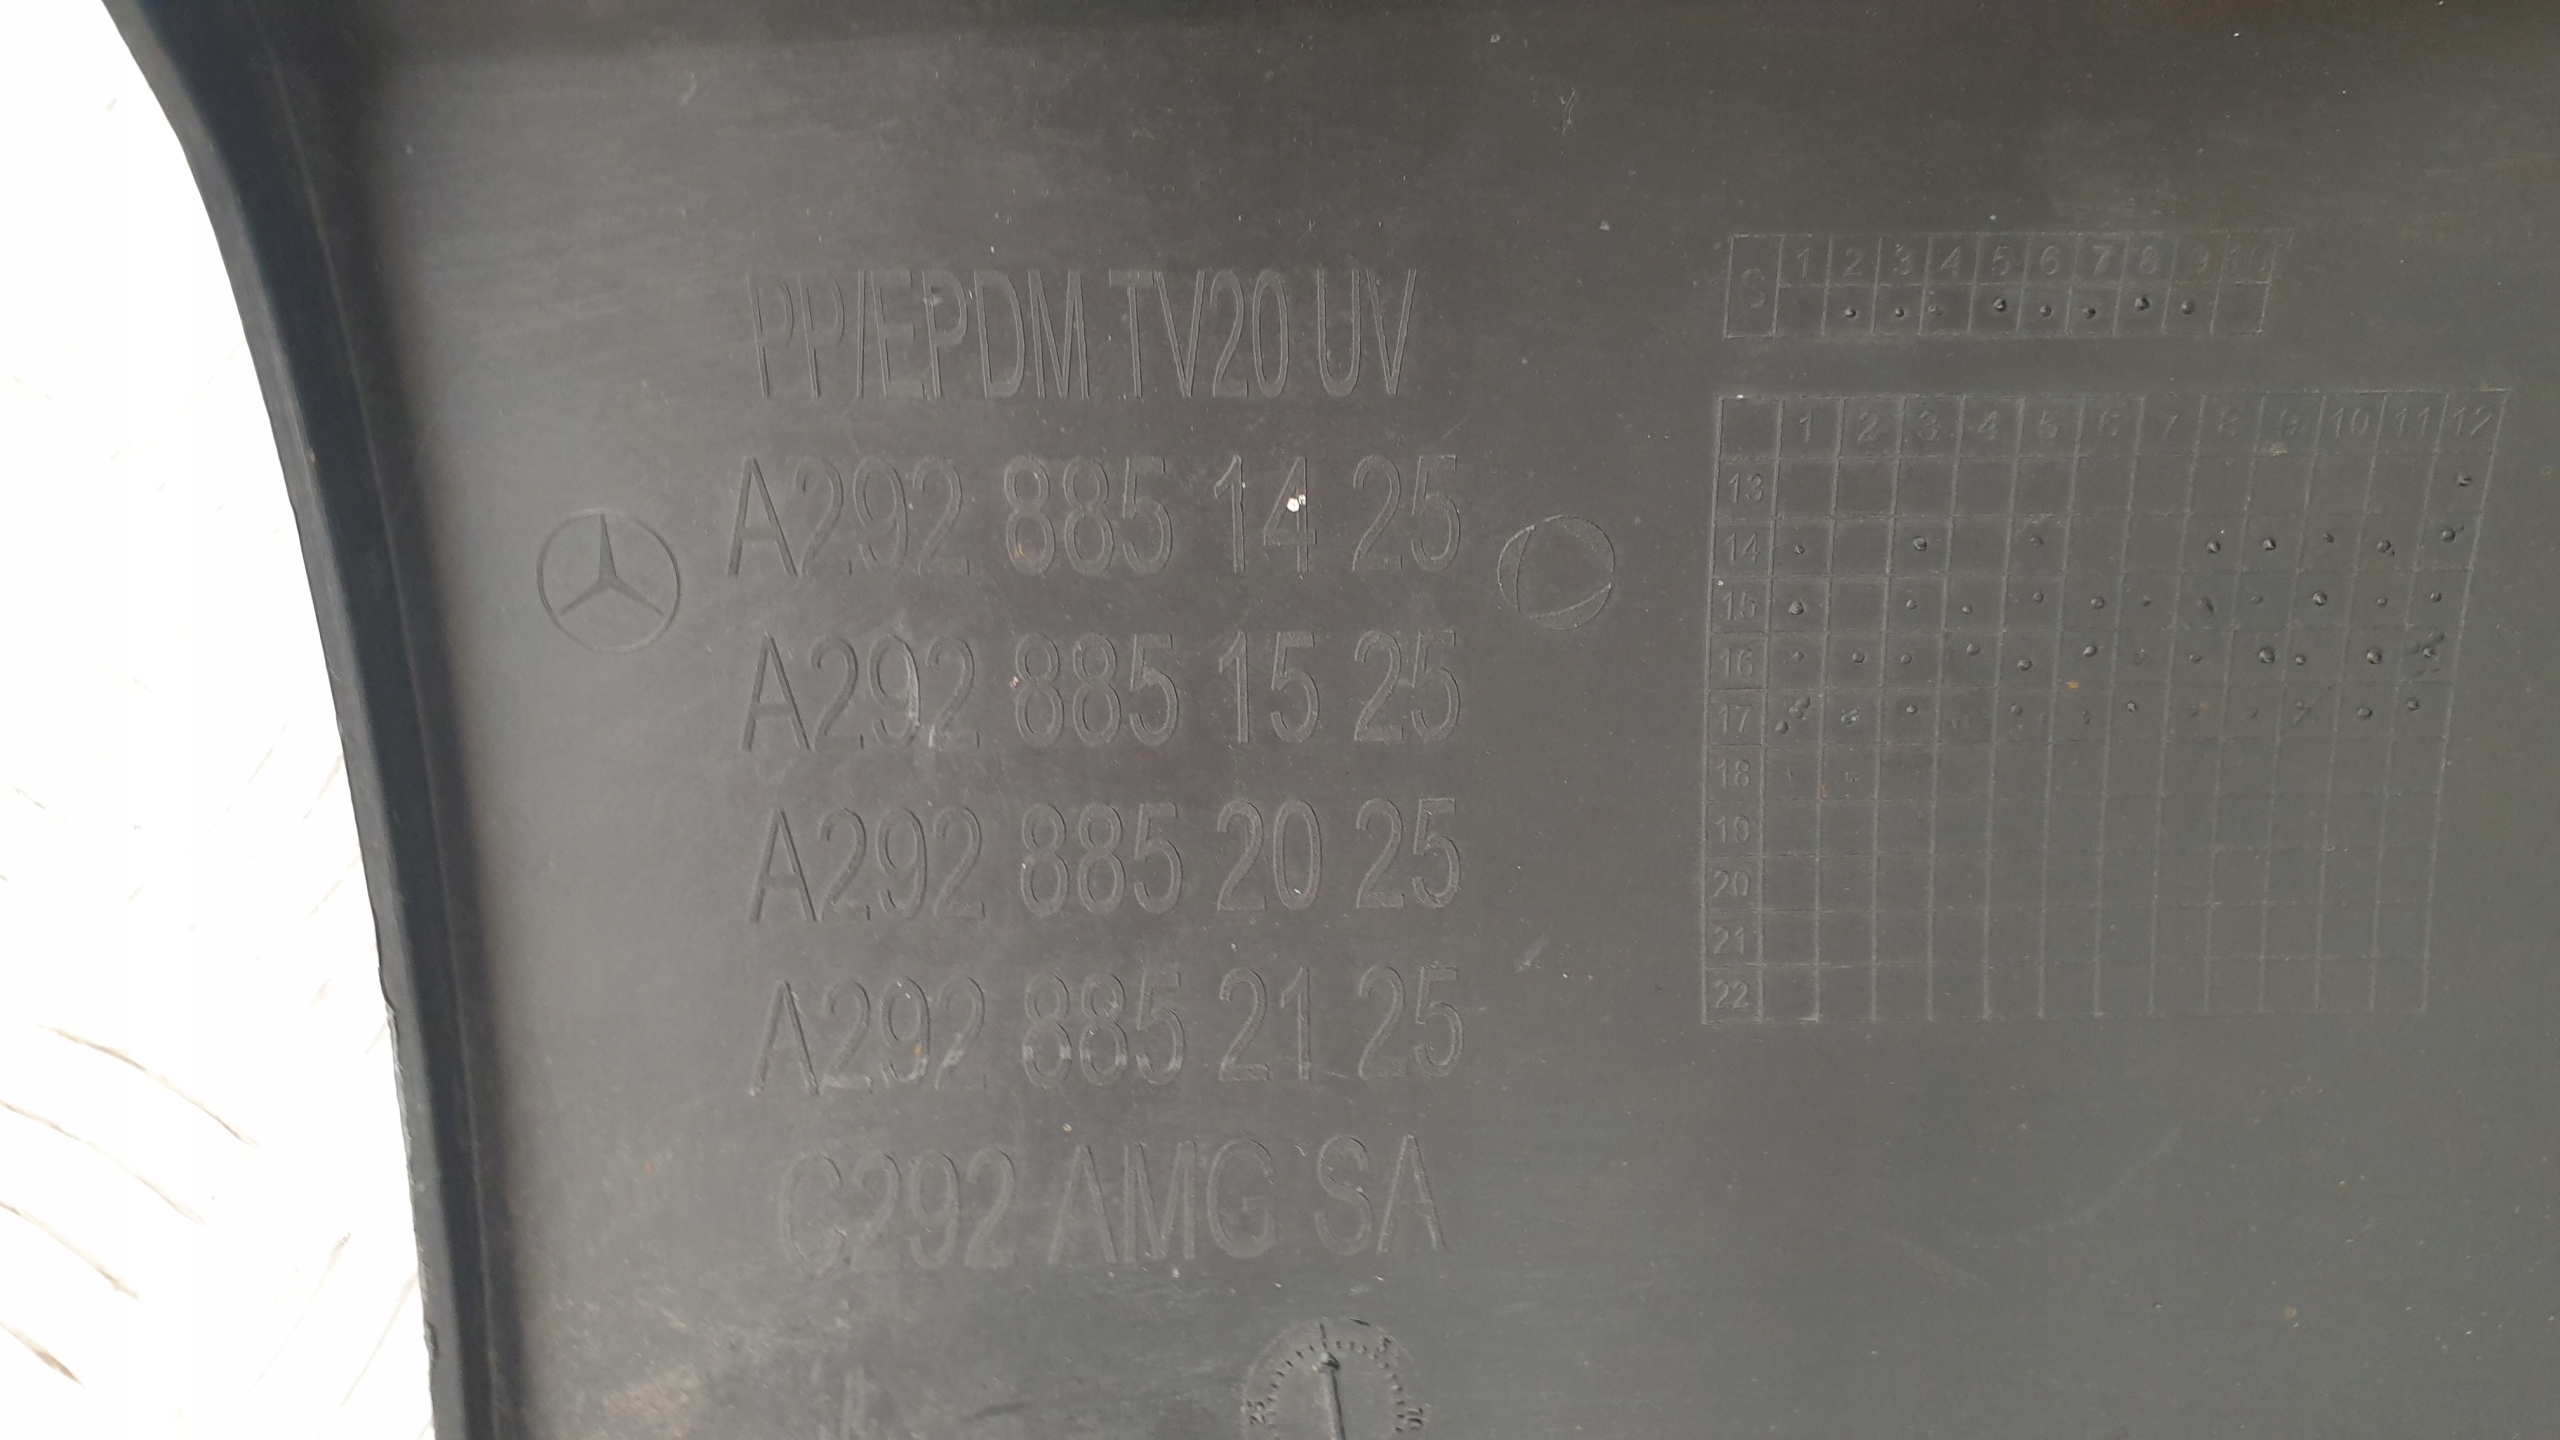 PP/EPDM TV20 UV
A292 885 14 25
A292 885 15 25
A292 885 20 25
A292 885 21 25
C292 AMG SA
S 1 2 3 4 5 6 7 8 9 10
1 2 3 4 5 6 7 8 9 10 11 12
13
14
15
16
17
18
19
20
21
22
25 5 10